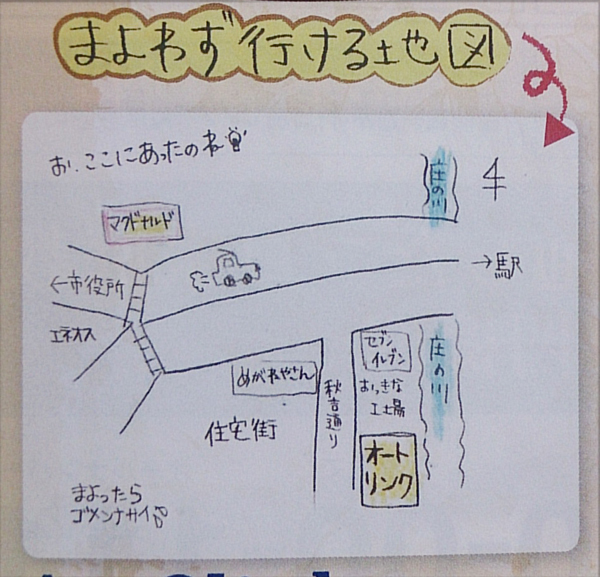 まよわず行ける地図
お、ここにあったのね
庄の川
マクドナルド
←市役所
→駅
エネオス
セブン
イレブン
庄の川
めがねやさん
秋吉通り
おっきな
工場
住宅街
オート
リンク
まよったら
ゴメンナサイ